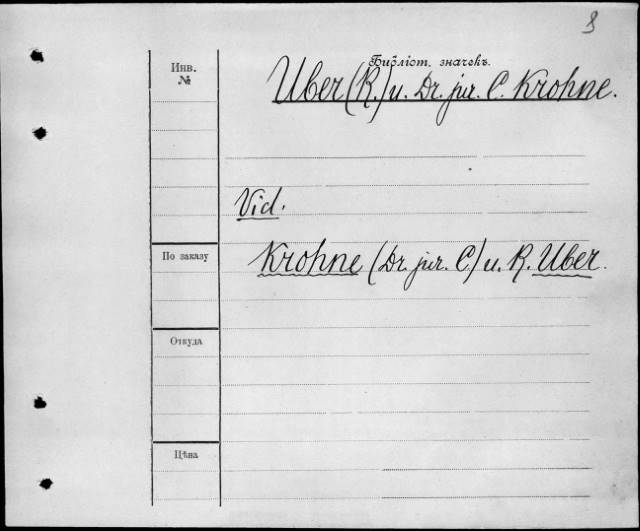 8
Библіот. значекъ.
Инв.
№
Uber (R.) u. Dr. jur. C. Krohne.
Vid.
По заказу
Krohne (Dr. jur. C.) u. R. Uber.
Откуда
Цѣна